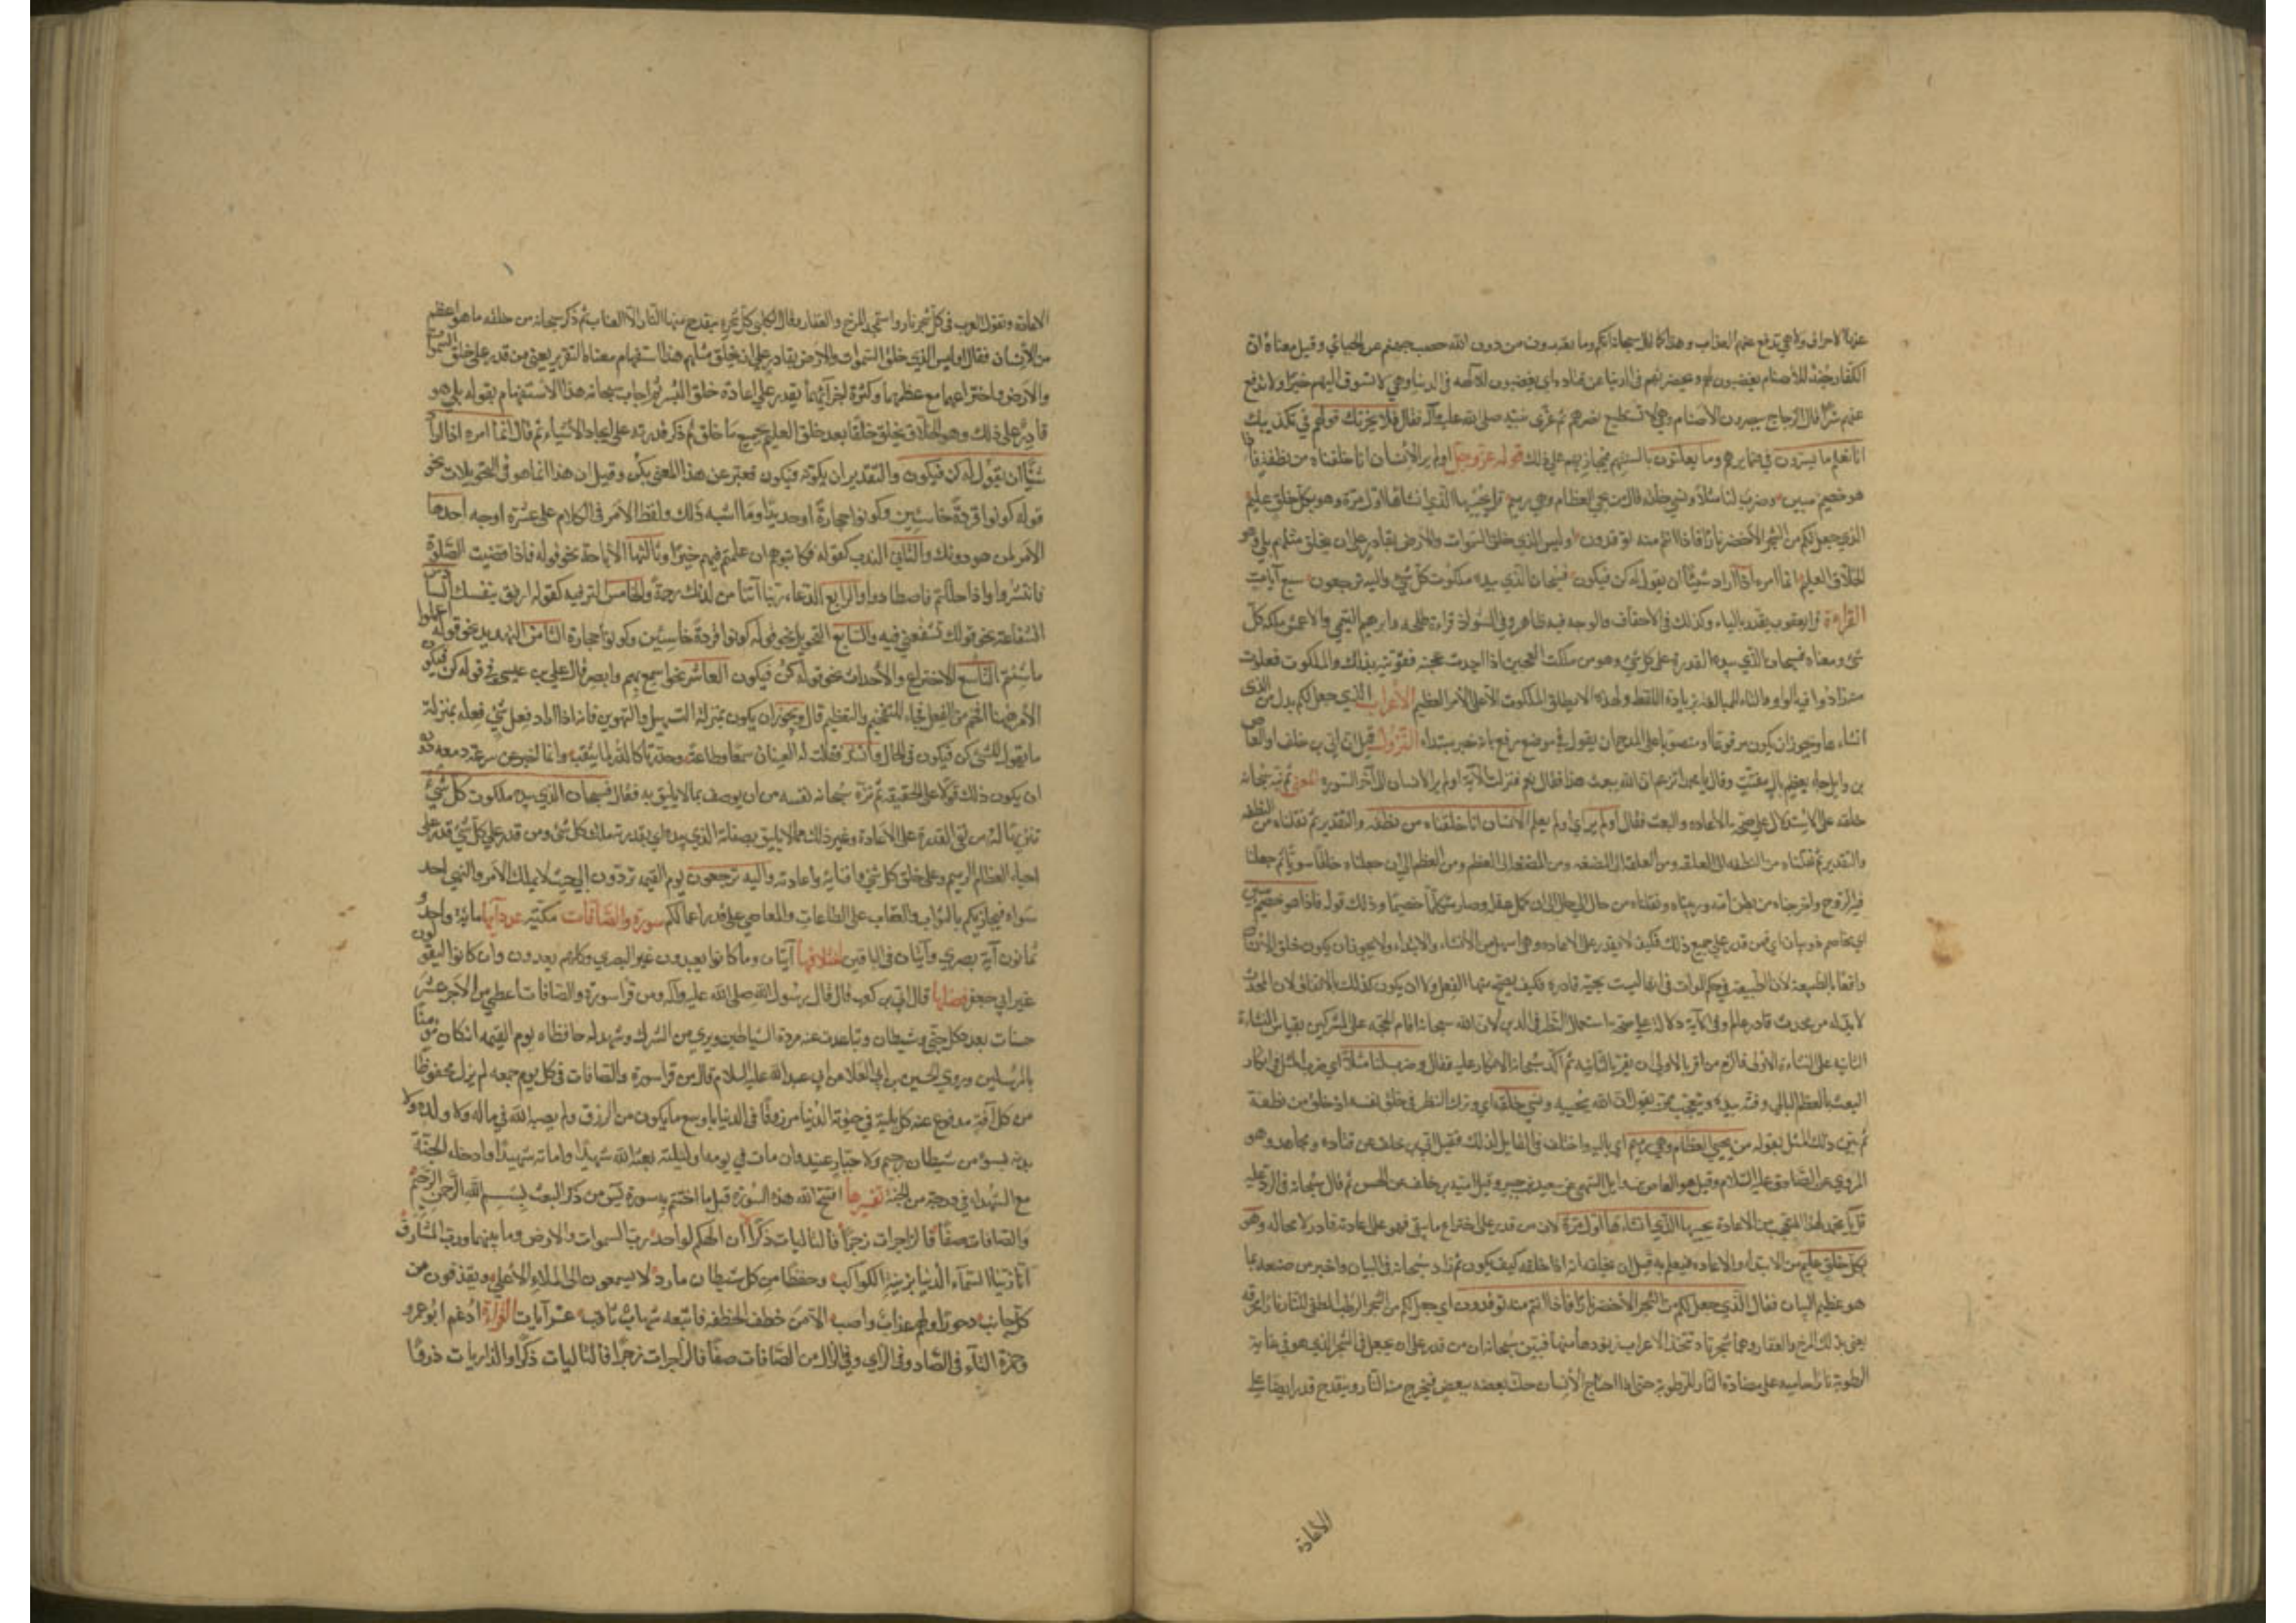 عنها الاحراق ولا هي تدفع عنهم العذاب وهذا كما قال سبحانه انكم وما تعبدون من دون الله حصب جهنم عن الجبائي وقيل معناه ان
الكفار جند للاصنام يغضبون لهم ويحضرونهم في الدنيا عن قتادة اي يغضبون للآلهة في الدنيا وهي لا تسوق اليهم خيرا ولا تدفع
عنهم شرا قال الزجاج ينصرون الاصنام وهي لا تستطيع نصرهم ثم عزى نبيه صلى الله عليه وآله فقال فلا يحزنك قولهم في تكذيبك
انا نعلم ما يسرون في ضمايرهم وما يعلنون بالسنتهم فنجازيهم على ذلك قوله عز وجل اولم ير الانسان انا خلقناه من نطفة فاذا
هو خصيم مبين وضرب لنا مثلا ونسي خلقه قال من يحيي العظام وهي رميم قل يحييها الذي انشاها اول مرة وهو بكل خلق عليم
الذي جعل لكم من الشجر الأخضر نارا فاذا انتم منه توقدون اوليس الذي خلق السموات والارض بقادر على ان يخلق مثلهم بلى وهو
الخلاق العليم انما امره اذا اراد شيئا ان يقول له كن فيكون فسبحان الذي بيده ملكوت كل شئ واليه ترجعون سبع آيات
القراءة قرا يعقوب يقدر بالياء وكذلك في الاحقاف والوجه فيه ظاهر وفي الشواذ قراءة طلحه وابرهيم التيمي والاعمش ملكة كل
شئ ومعناه فسبحان الذي بيده القدرة على كل شئ وهو من ملكت العجين اذا اجدت عجنه فقويته بذلك والملكوت فعلوت
منه زادوا فيه الواو والتاء للمبالغة بزيادة اللفظ ولهذا لا يطلق الملكوت الا على الامر العظيم الأعراب الذي جعل لكم بدل من الذي
انشاها ويجوز ان يكون مرفوعا او منصوبا على المدح ان يقول في موضع رفع بانه خبر مبتداء النزول قيل ان ابي بن خلف او العاص
بن وايل جاء بعظم بال متفتت وقال يا محمد اتزعم ان الله يبعث هذا فقال نعم فنزلت الآية اولم ير الانسان الى آخر السورة المعنى ثم نبه سبحانه
خلقه على الاستدلال على صحة الاعادة والبعث فقال اولم ير اي اولم يعلم الانسان انا خلقناه من نطفة والتقدير ثم نقلناه من النطفه
والتقدير ثم نقلناه من النطفه الى العلقه ومن العلقة الى المضغه ومن المضغة الى العظم ومن العظم الى ان جعلناه خلقا سويا ثم جعلنا
فيه الروح واخرجناه من بطن امه وربيناه ونقلناه من حال الى حال الى ان كمل عقله وصار متكلما خصيما وذلك قوله فاذا هو خصيم مبين
اي مخاصم ذو بيان اي فمن قدر على جميع ذلك فكيف لا يقدر على الاعادة وهي اسهل من الأنشاء والابتداء ولا يجوز ان يكون خلق الانسان
واقعا بالطبيعة لأن الطبيعة في حكم الموات في انها ليست بحية قادرة فكيف يصح منها الفعل ولا ان يكون كذلك بالاتفاق لان المحدث
لا بد له من محدث قادر عالم وفي الآية دلالة على صحة استعمال النظر في الدين لأن الله سبحانه اقام الحجة على المشركين بقياس النشاءة
الثانية على النشاءة الاولى والزم من اقر بالاولى ان يقر بالثانيه ثم اكد سبحانه الانكار عليه فقال وضرب لنا مثلا اي ضرب المثل في انكار
البعث بالعظم البالي وفته بيده وتعجب ممن يقول ان الله يحييه ونسي خلقه اي وترك النظر في خلق نفسه اذ خلق من نطفة
ثم بين ذلك المثل بقوله من يحيي العظام وهي رميم اي بالية واختلف في القايل لذلك فقيل ابي بن خلف عن قتادة ومجاهد وهو
المروي عن الصادق عليه السلام وقيل هو العاص بن وايل السهمي عن سعيد بن جبير وقيل امية بن خلف عن الحسن ثم قال سبحانه في الرد عليه
قل يا محمد لهذا المتعجب من الاعادة يحييها الذي انشاءها اول مرة لان من قدر على اختراع ما يبقى فهو على اعادته قادر لا محالة وهو
بكل خلق عليم من الابتداء والاعادة فيعلم به قبل ان يخلقه انه اذا خلقه كيف يكون ثم زاد سبحانه في البيان واخبر من صنعه بما
هو عظيم البيان فقال الذي جعل لكم من الشجر الأخضر نارا فاذا انتم منه توقدون اي جعل لكم من الشجر الرطب المطفي للنار نارا محرقة
يعني بذلك المرخ والعفار وهما شجرتان تتخذ الاعراب زنودها منها فبين سبحانه ان من قدر على ان يجعل في الشجر الذي هو في غاية
الرطوبة نارا حامية على مضادة النار للرطوبة حتى اذا احتاج الأنسان حك بعضه ببعض فيخرج منه النار وينقدح قدر ايضا على
الأعادة
الاعادة وتقول العرب في كل شجر نار واستمجد المرخ والعفار وقال الكلبي كل شجرة ينقدح منها النار الا العناب ثم ذكر سبحانه من خلقه ما هو اعظم
من الأنسان فقال اوليس الذي خلق السموات والارض بقادر على ان يخلق مثلهم هذا استفهام معناه التقرير يعني من قدر على خلق السموات
والارض واختراعهما مع عظمهما وكثرة اجزائهما يقدر على اعادة خلق البشر ثم اجاب سبحانه هذا الاستفهام بقوله بلى هو
قادر على ذلك وهو الخلاق يخلق خلقا بعد خلق العليم بجميع ما خلق ثم ذكر قدرته على ايجاد الأشياء ثم قال انما امره اذا اراد
شيئا ان يقول له كن فيكون والتقدير ان يكونه فيكون فعبر عن هذا المعنى بكن وقيل ان هذا انما هو في التحويلات نحو
قوله كونوا قردة خاسئين وكونوا حجارة او حديدا وما اشبه ذلك ولفظ الأمر في الكلام على عشرة اوجه احدها
الأمر لمن هو دونك والثاني الندب كقوله فكاتبوهم ان علمتم فيهم خيرا وثالثها الأباحة نحو قوله فاذا قضيت الصلوة
فانتشروا واذا حللتم فاصطادوا والرابع الدعاء ربنا آتنا من لدنك رحمة والخامس الترفيه كقوله ارفق بنفسك السادس
الشفاعة نحو قولك شفعني فيه والسابع التحويل نحو قوله كونوا قردة خاسئين وكونوا حجارة الثامن التهديد نحو قوله اعملوا
ما شئتم التاسع الاختراع والأحداث نحو قوله كن فيكون العاشر نحو اسمع بهم وابصر قال علي بن عيسى في قوله كن فيكون
الأمر هاهنا افخم من الفعل فجاء للتفخيم والتعظيم قال ويجوز ان يكون بمنزلة التسهيل والتهوين فانه اذا اراد فعل شئ فعله بمنزلة
ما يقول للشئ كن فيكون في الحال وانشد فقالت له العينان سمعا وطاعة وحدرتا كالدر لما يثقب وانما اخبر عن سرعة دمعه دون
ان يكون ذلك قولا على الحقيقة ثم نزه سبحانه نفسه من ان يوصف بما لا يليق به فقال فسبحان الذي بيده ملكوت كل شئ
تنزيها له من نفي القدرة على الأعادة وغير ذلك مما لا يليق بصفاته الذي بيده اي بقدرته ملك كل شئ ومن قدر على كل شئ قدر على
احياء العظام الرميم وعلى خلق كل شئ وافنايه واعادته واليه ترجعون يوم القيمة تردون الى حيث لا يملك الأمر والنهي احد
سواه فيجازيكم بالثواب والعقاب على الطاعات والمعاصي على قدر اعمالكم سورة والصافات مكية عدد آيها ماية واحد و
ثمانون آية بصري وآيتان في الباقين اختلافها آيتان وما كانوا يعبدون غير البصري وكلهم يعدون وان كانوا ليقولون
غير ابي جعفر فضلها قال ابي بن كعب قال قال رسول الله صلى الله عليه وآله ومن قرا سورة والصافات اعطي من الأجر عشر
حسنات بعدد كل جني وشيطان وتباعدت عنه مردة الشياطين وبري من الشرك وشهد له حافظاه يوم القيمه انه كان مؤمنا
بالمرسلين وروى الحسين بن ابي العلا عن ابي عبد الله عليه السلام قال من قرا سورة والصافات في كل يوم جمعه لم يزل محفوظا
من كل آفة مدفوع عنه كل بلية في حيوة الدنيا مرزوقا في الدنيا باوسع ما يكون من الرزق ولم يصبه الله في ماله ولا ولده ولا
بدنه بسوء من شيطان رجيم ولا جبار عنيد وان مات في يومه او ليلته بعثه الله شهيدا واماته شهيدا وادخله الجنة
مع الشهداء في درجة من الجنة تفسيرها افتتح الله هذه السورة قبل ما اختتم به سورة يس من ذكر البعث بسم الله الرحمن الرحيم
والصافات صفا فالزاجرات زجرا فالتاليات ذكرا ان الهكم لواحد رب السموات والارض وما بينهما ورب المشارق
انا زينا السماء الدنيا بزينة الكواكب وحفظا من كل شيطان مارد لا يسمعون الى الملاء الأعلى ويقذفون من
كل جانب دحورا ولهم عذاب واصب الا من خطف الخطفة فاتبعه شهاب ثاقب عشر آيات القراءة ادغم ابو عمرو
وحمزة التاء في الصاد وفي الزاي وفي الذال من الصافات صفا فالزاجرات زجرا فالتاليات ذكرا والذاريات ذروا